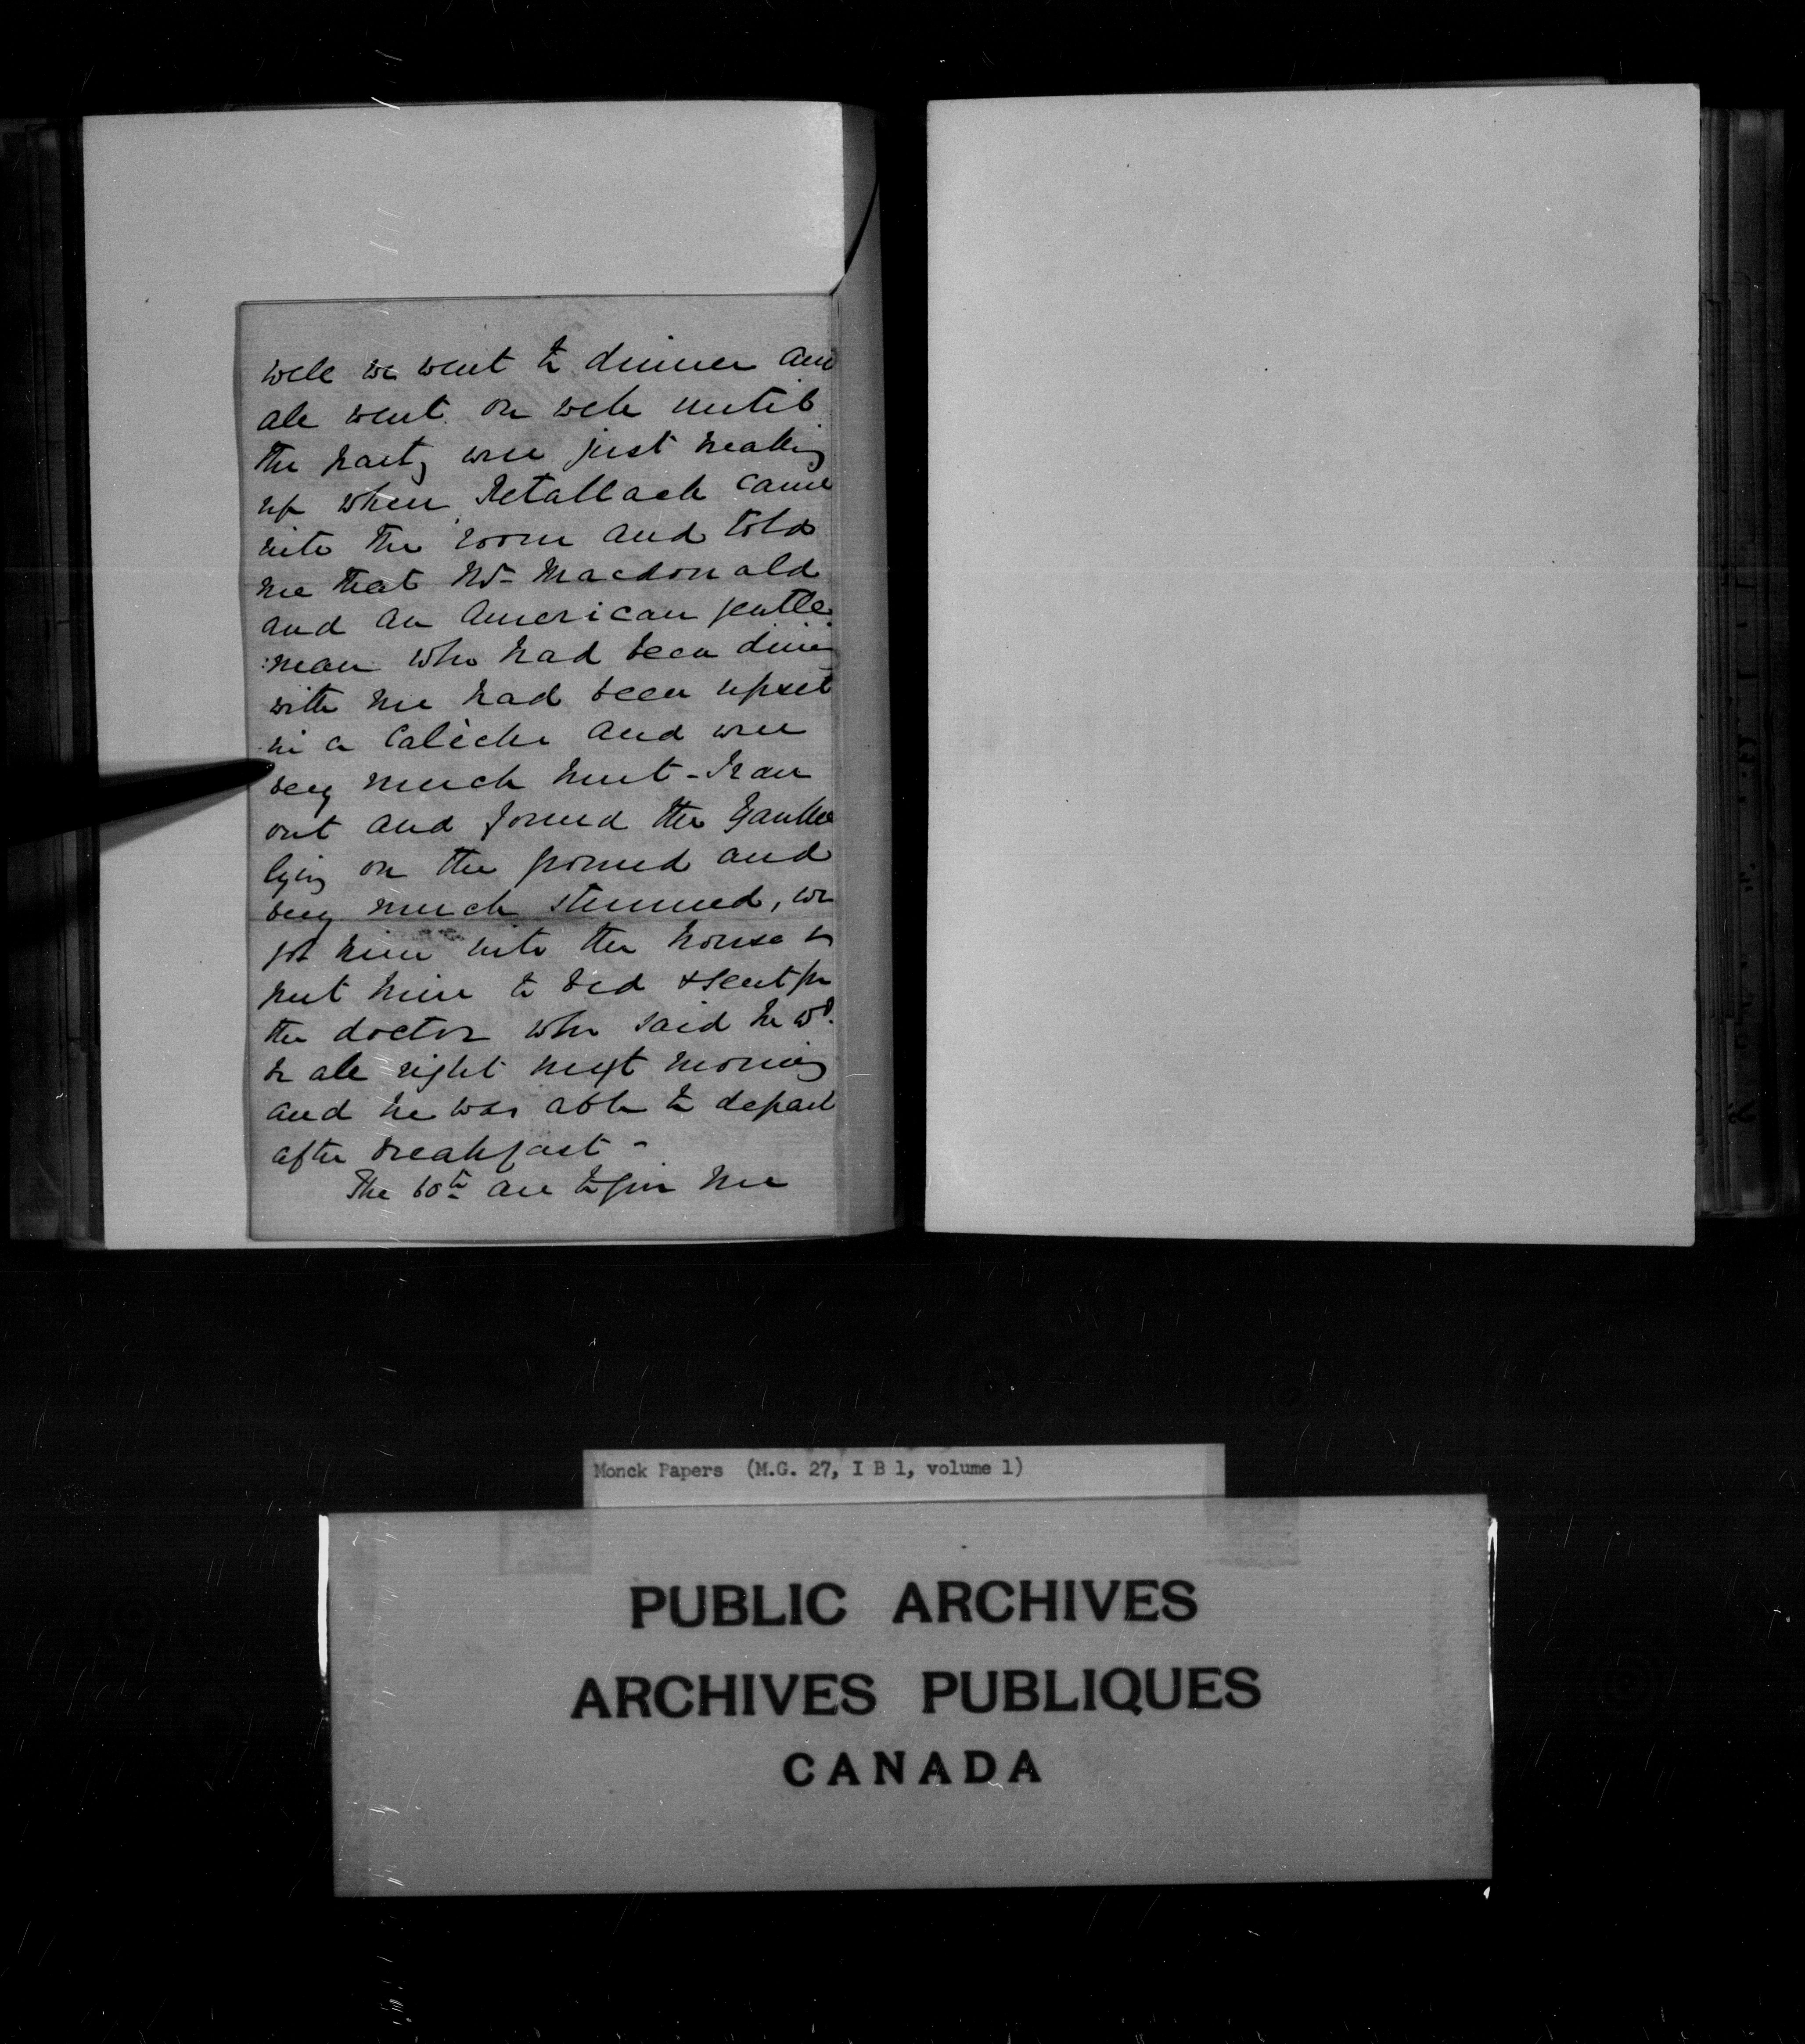 well we went to dinner and
all went on well until
the party were just breaking
up when Retallack came
into the room and told
me that Mr Macdonald
and an American gentle
:man who had been dining
with me had been upset
in a Calèche and were
very much hurt - I ran
out and found the Yankee
lying on the ground and
very much stunned, we
got him into the house &
put him to bed & sent for
the doctor who said he wd.
be all right next morning
and he was able to depart
after breakfast -
The 60th are to give me
Monck Papers (M.G. 27, I B 1, volume 1)
PUBLIC ARCHIVES
ARCHIVES PUBLIQUES
CANADA